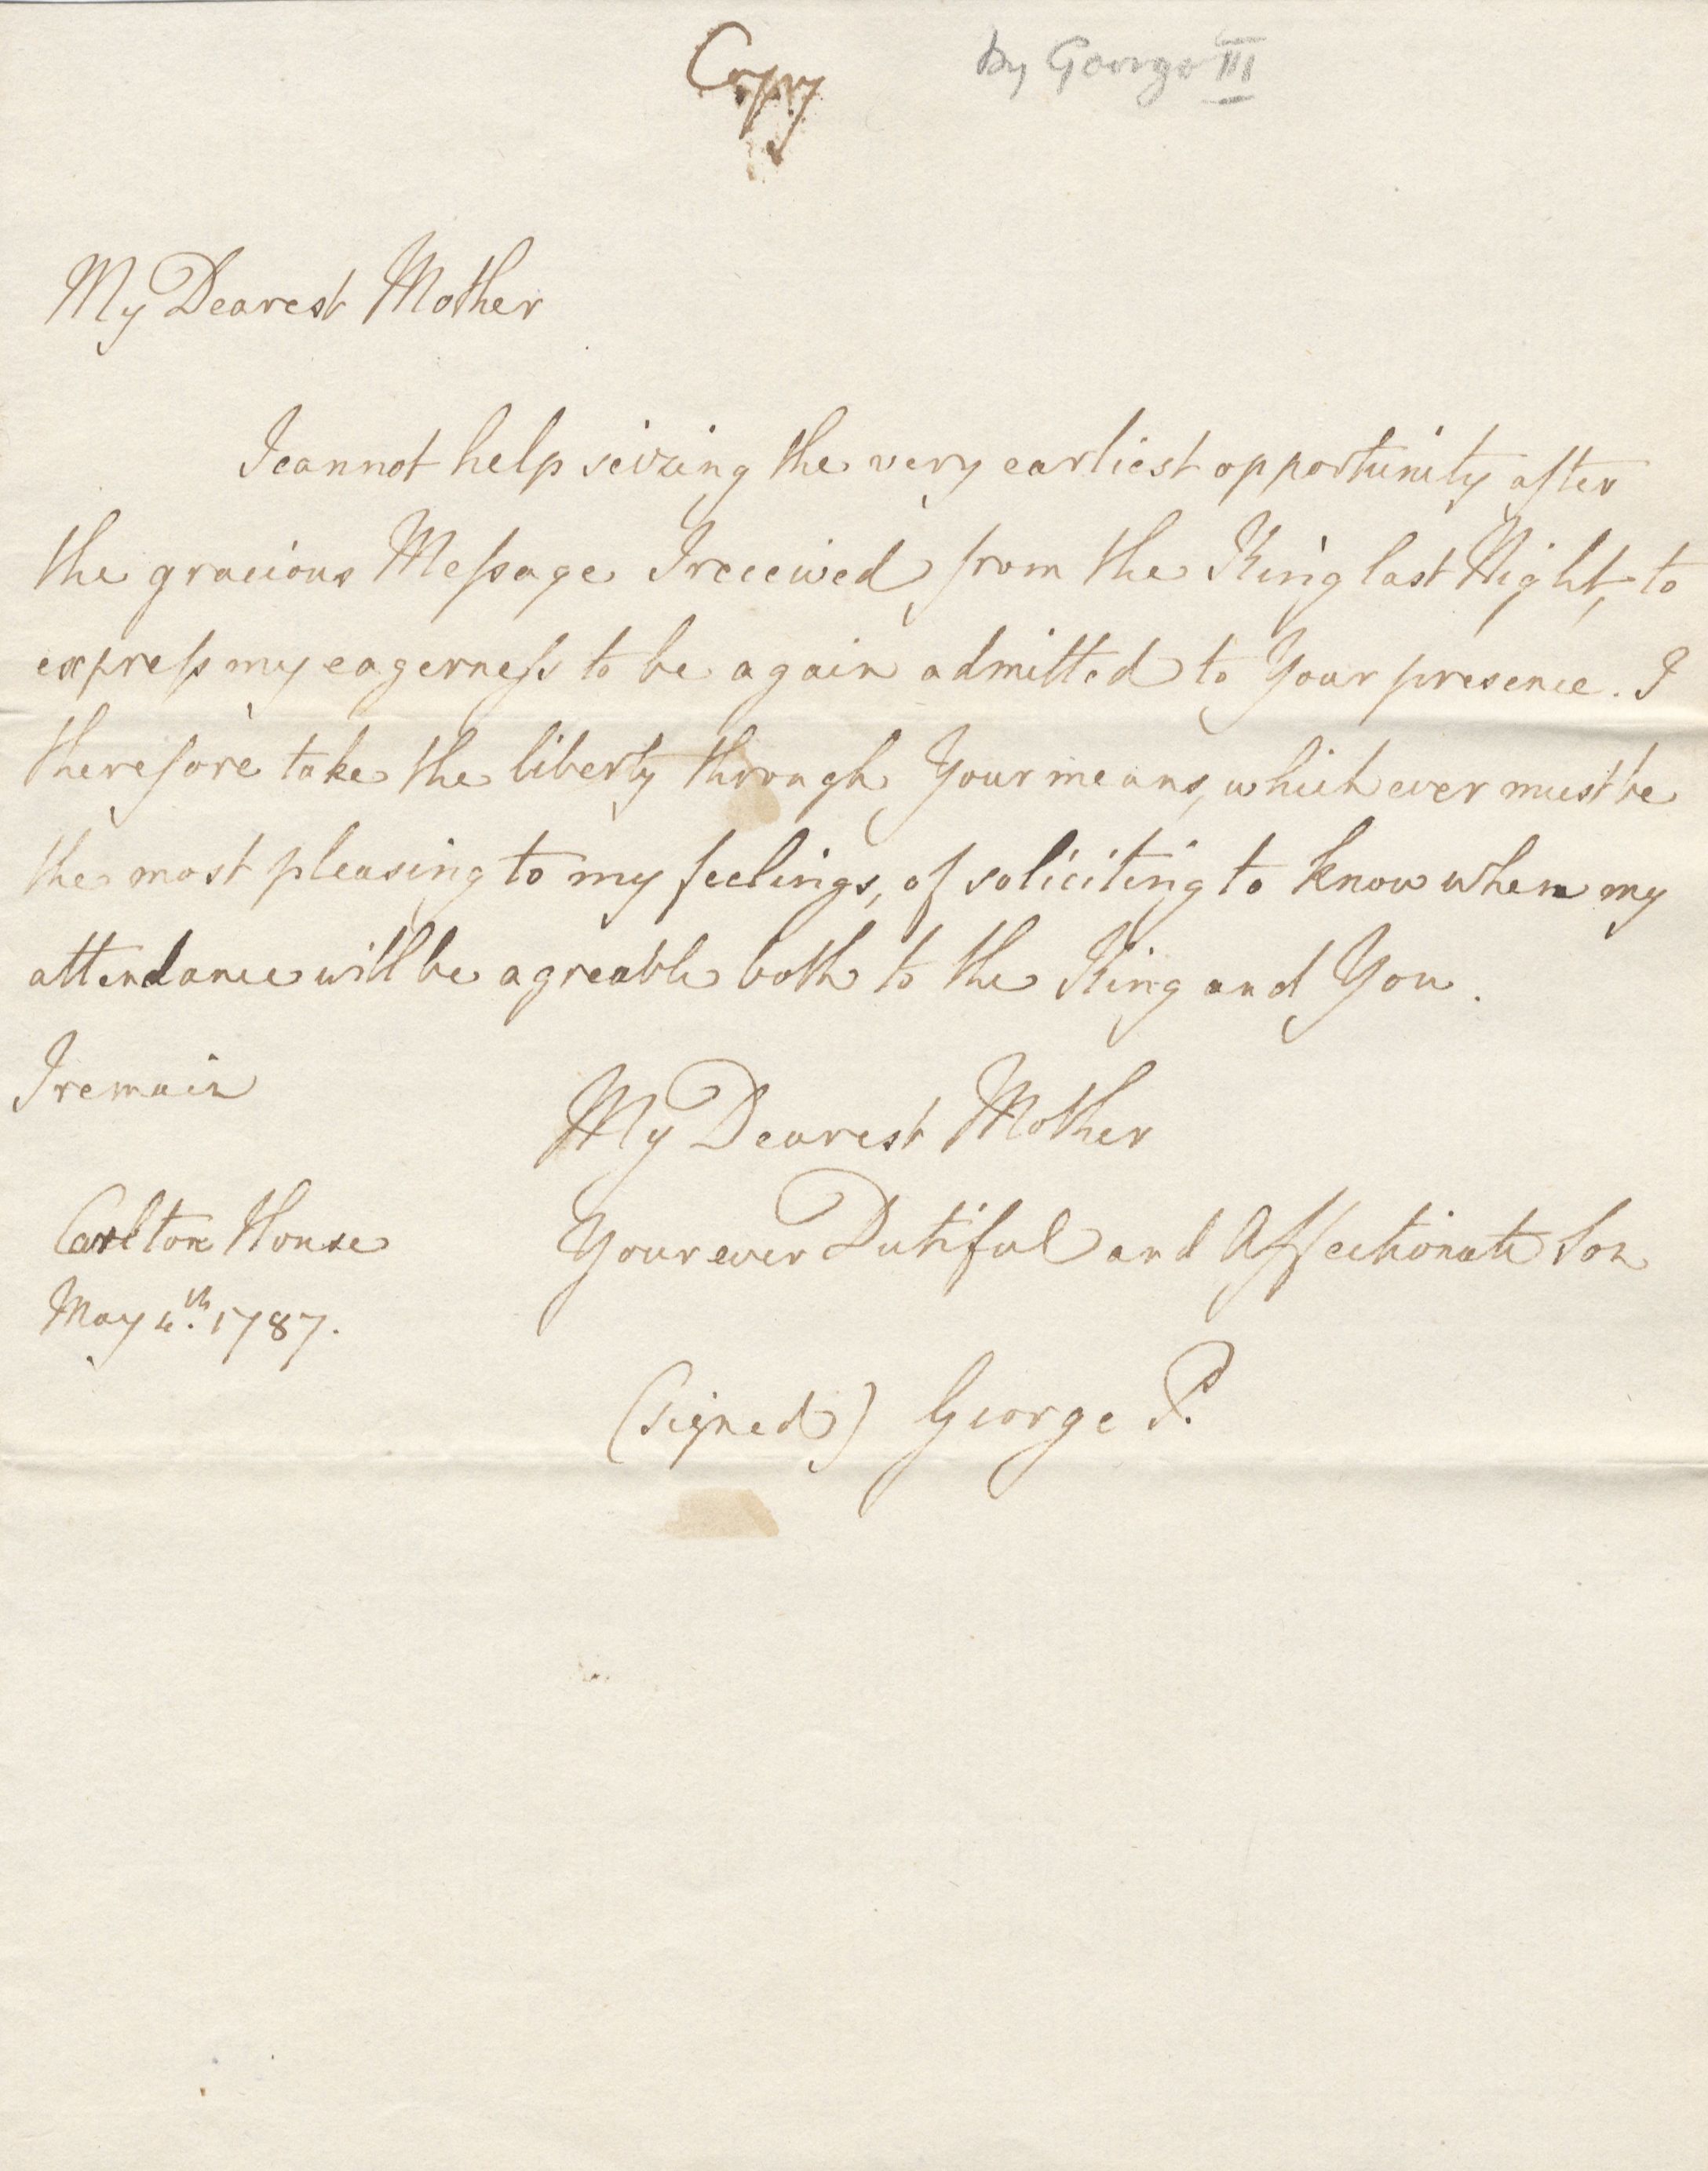 Copy by George III
My Dearest Mother
I cannot help seizing the very earliest opportunity after
the gracious Meſsage I received from the King last Night, to
expreſs my eagerneſs to be again admitted to Your presence. I
therefore take the liberty through Your means, which ever must be
the most pleasing to my feelings, of soliciting to know when my
attendance will be agreable both to the King and You.
I remain
My Dearest Mother
Your ever Dutiful and Affectionate Son
Carlton House
May 4.th 1787.
(signed) George P.